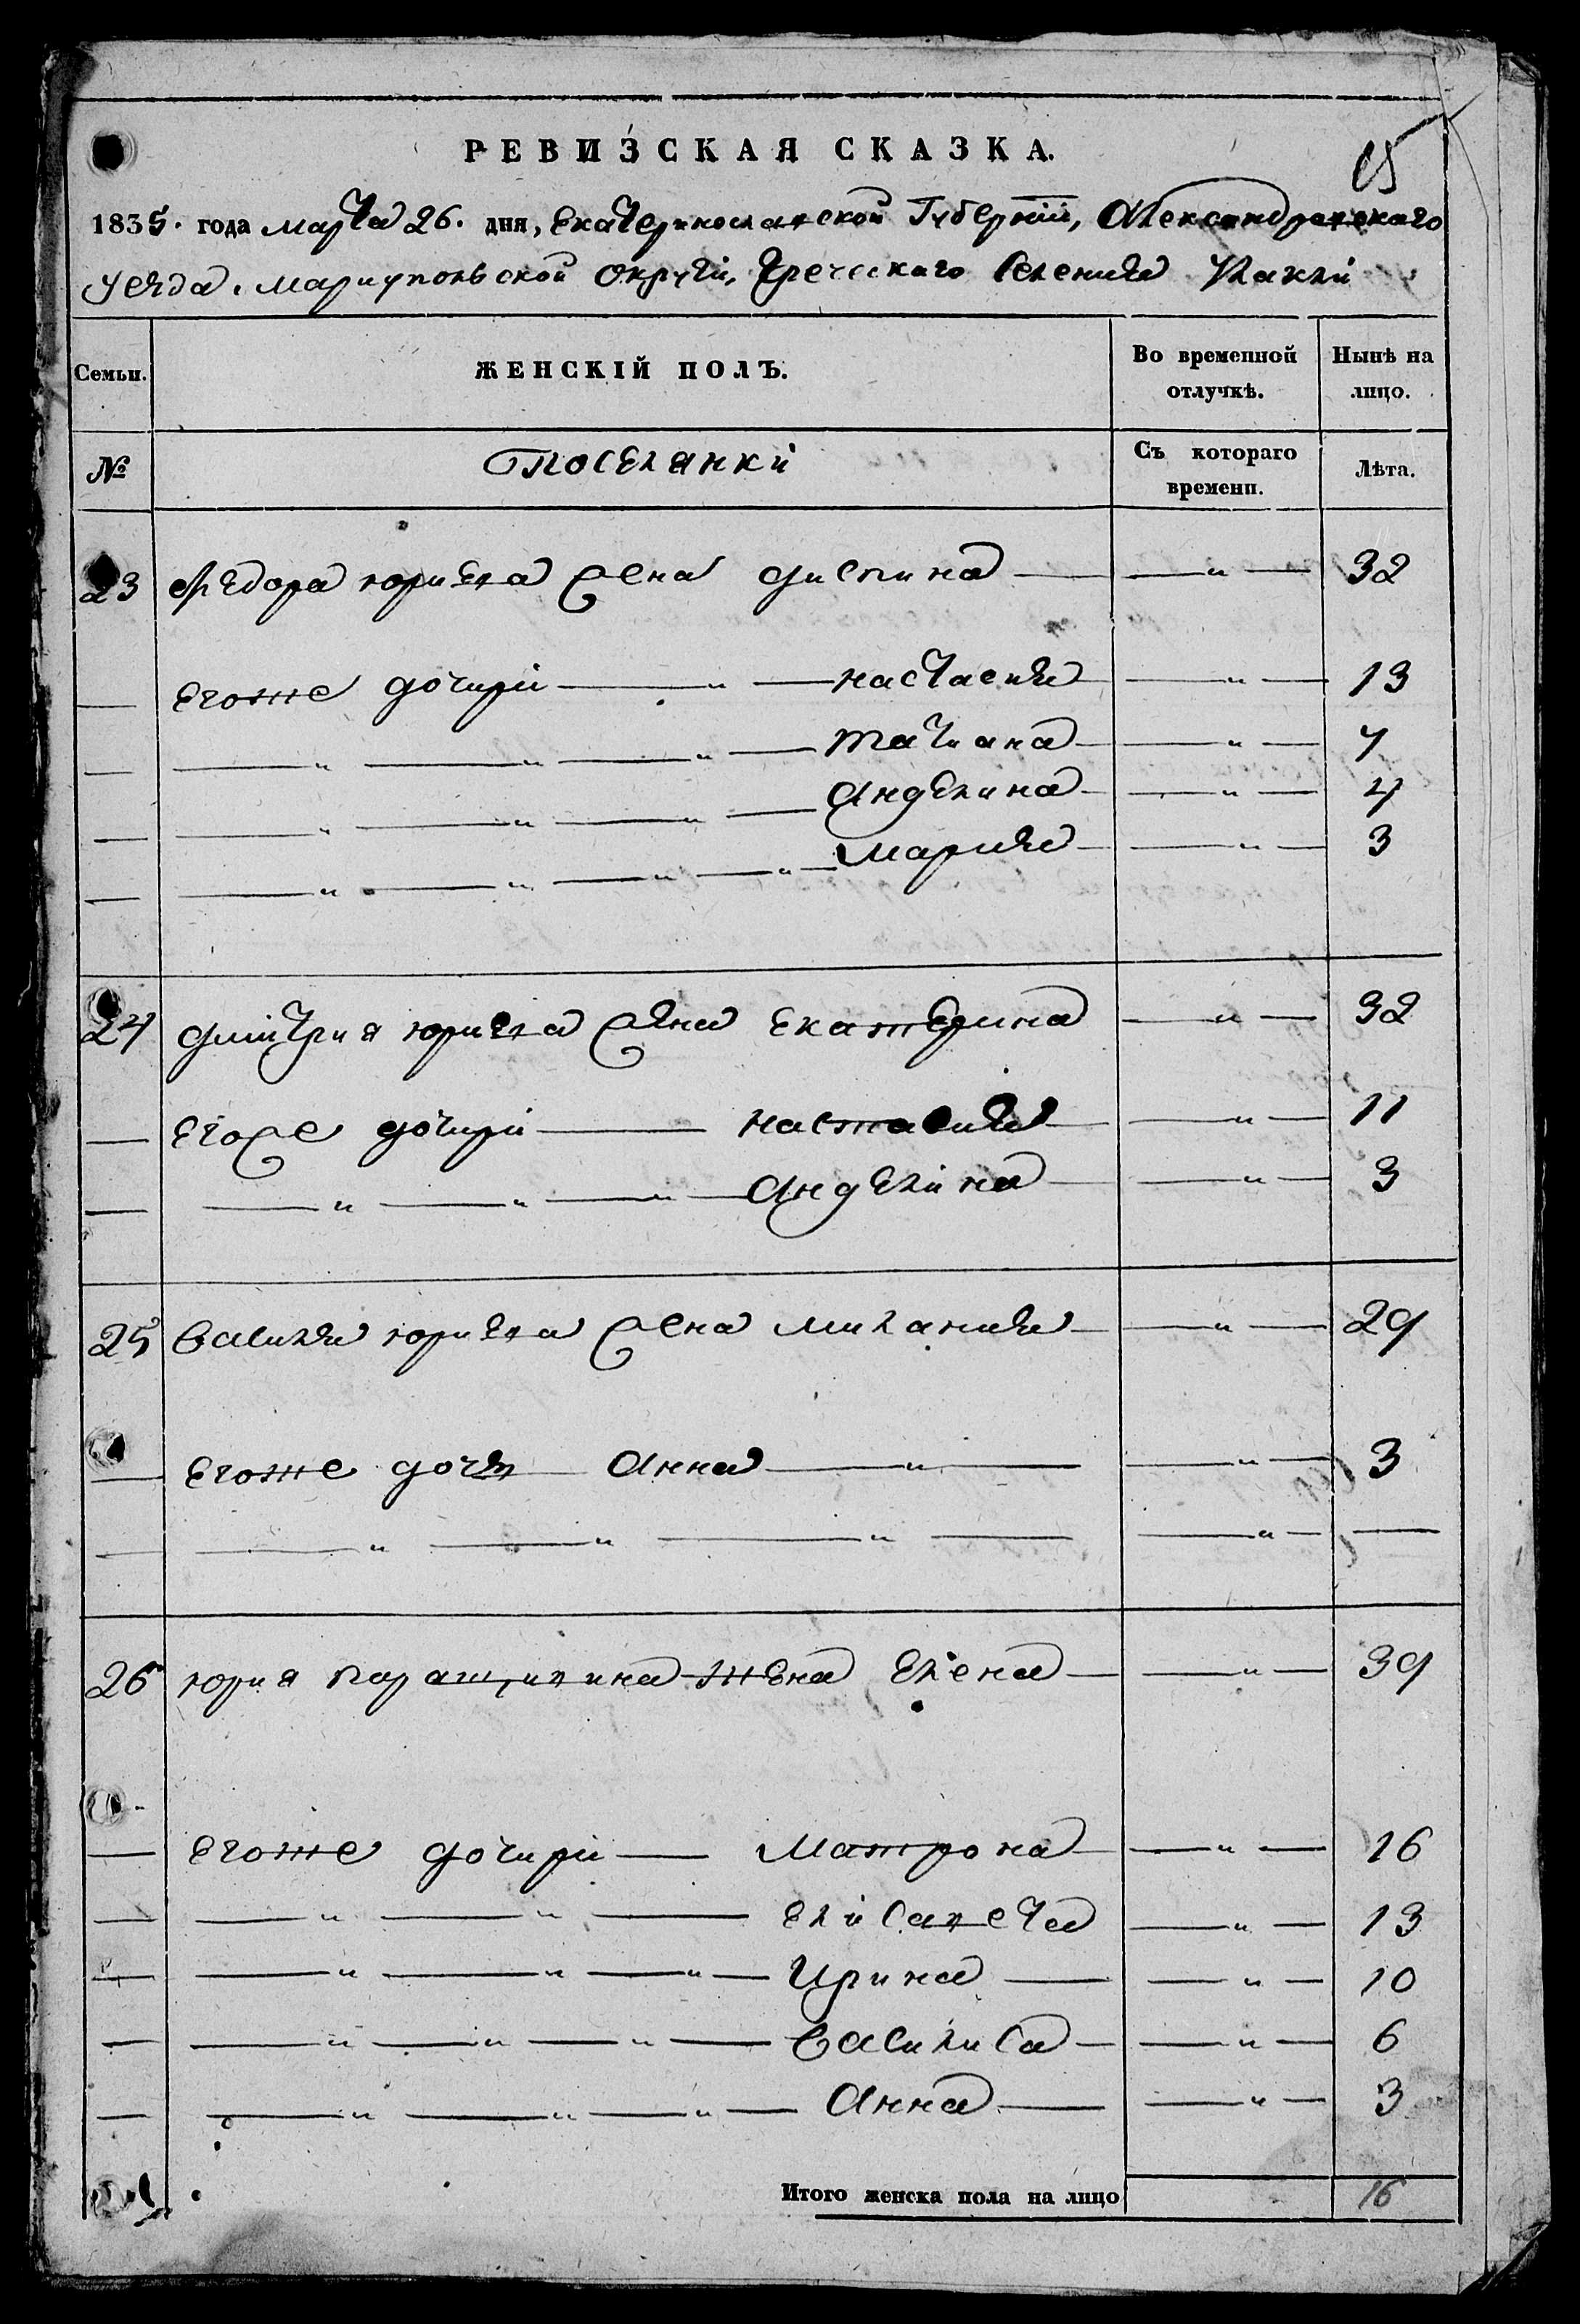 РЕВИЗСКАЯ СКАЗКА.
1835. года марта 26. дня, Екатеринославской Губерніи, Александровскаго
уезда, мариупольской округи, Греческаго Селения
Семьи.
ЖЕНСКІЙ ПОЛЪ.
Во временной отлучкѣ.
Ныне на лицо.
№
Поселянки
Съ котораго времени.
Лѣта.
23 Федора юриева жена 〃 32
— егоже дочири — 〃 — настасия — 〃 — 13
— — 〃 — 〃 — 〃 — татиана — 〃 — 7
— — 〃 — 〃 — 〃 — Анделина — 〃 — 4
— — 〃 — 〃 — 〃 — 〃 — мария — 〃 — 3
24 дмитрия юриева жена Екатерина — 〃 — 32
— егоже дочири — настасия — 〃 — 11
— — 〃 — 〃 — 〃 — Анделина — 〃 — 3
25 василия юриева жена милания — 〃 — 29
— егоже дочь Анна — 〃 — — 〃 — 3
— — 〃 — 〃 — 〃 — — 〃 — —
26 юрия жена Елена — — 〃 — 39
— егоже дочири — Матрона — 〃 — 16
— — 〃 — 〃 — Елисавета — 〃 — 13
— — 〃 — 〃 — 〃 — Ирина — — 〃 — 10
— — 〃 — 〃 — 〃 — Василиса — — 〃 — 6
— — 〃 — 〃 — 〃 — Анна — — 〃 — 3
Итого женска пола на лицо 16